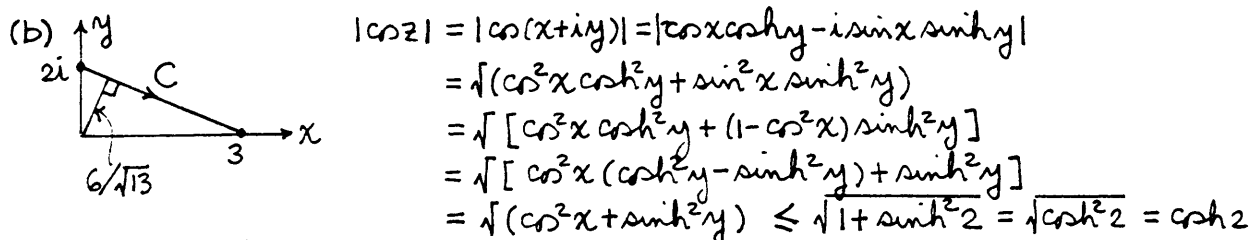 (b) y
2i C
x
3
6/√13
|cos z| = |cos(x+iy)| = |cos x cosh y - i sin x sinh y|
= √(cos²x cosh²y + sin²x sinh²y)
= √[cos²x cosh²y + (1-cos²x) sinh²y]
= √[cos²x (cosh²y - sinh²y) + sinh²y]
= √(cos²x + sinh²y) ≤ √(1 + sinh²2) = √(cosh²2) = cosh 2